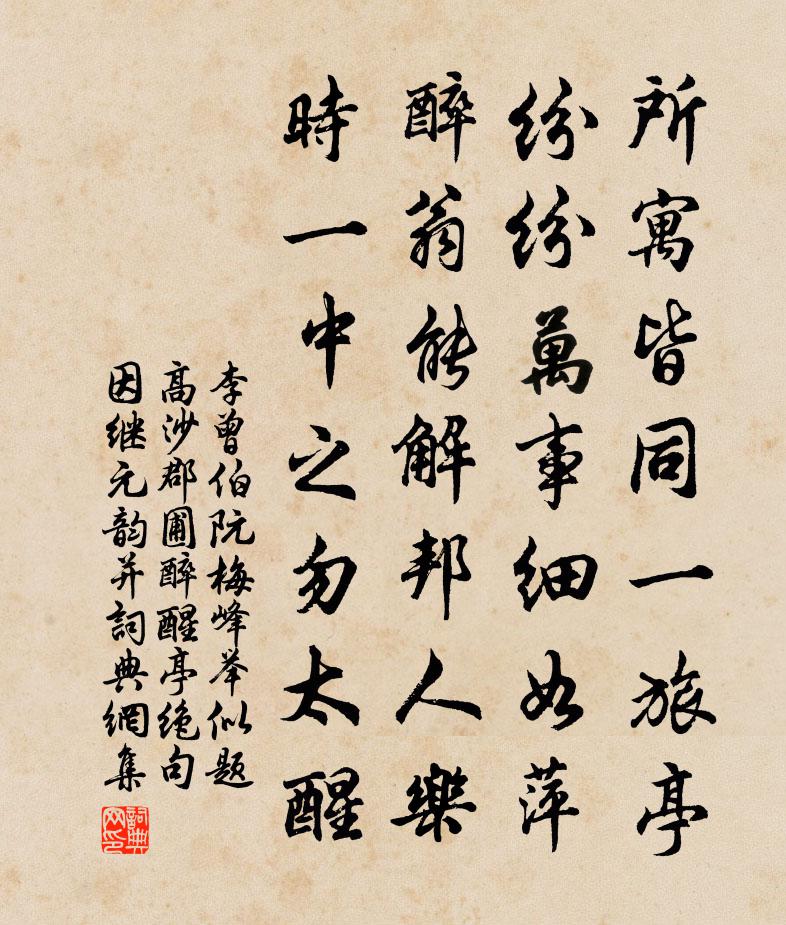 所寓皆同一旅亭
紛紛萬事細如萍
醉翁能解邦人樂
時一中之勿太醒
李曾伯阮梅峰举似题
高沙郡圃醉醒亭绝句
因继元韵并詞典網集
詞典网印